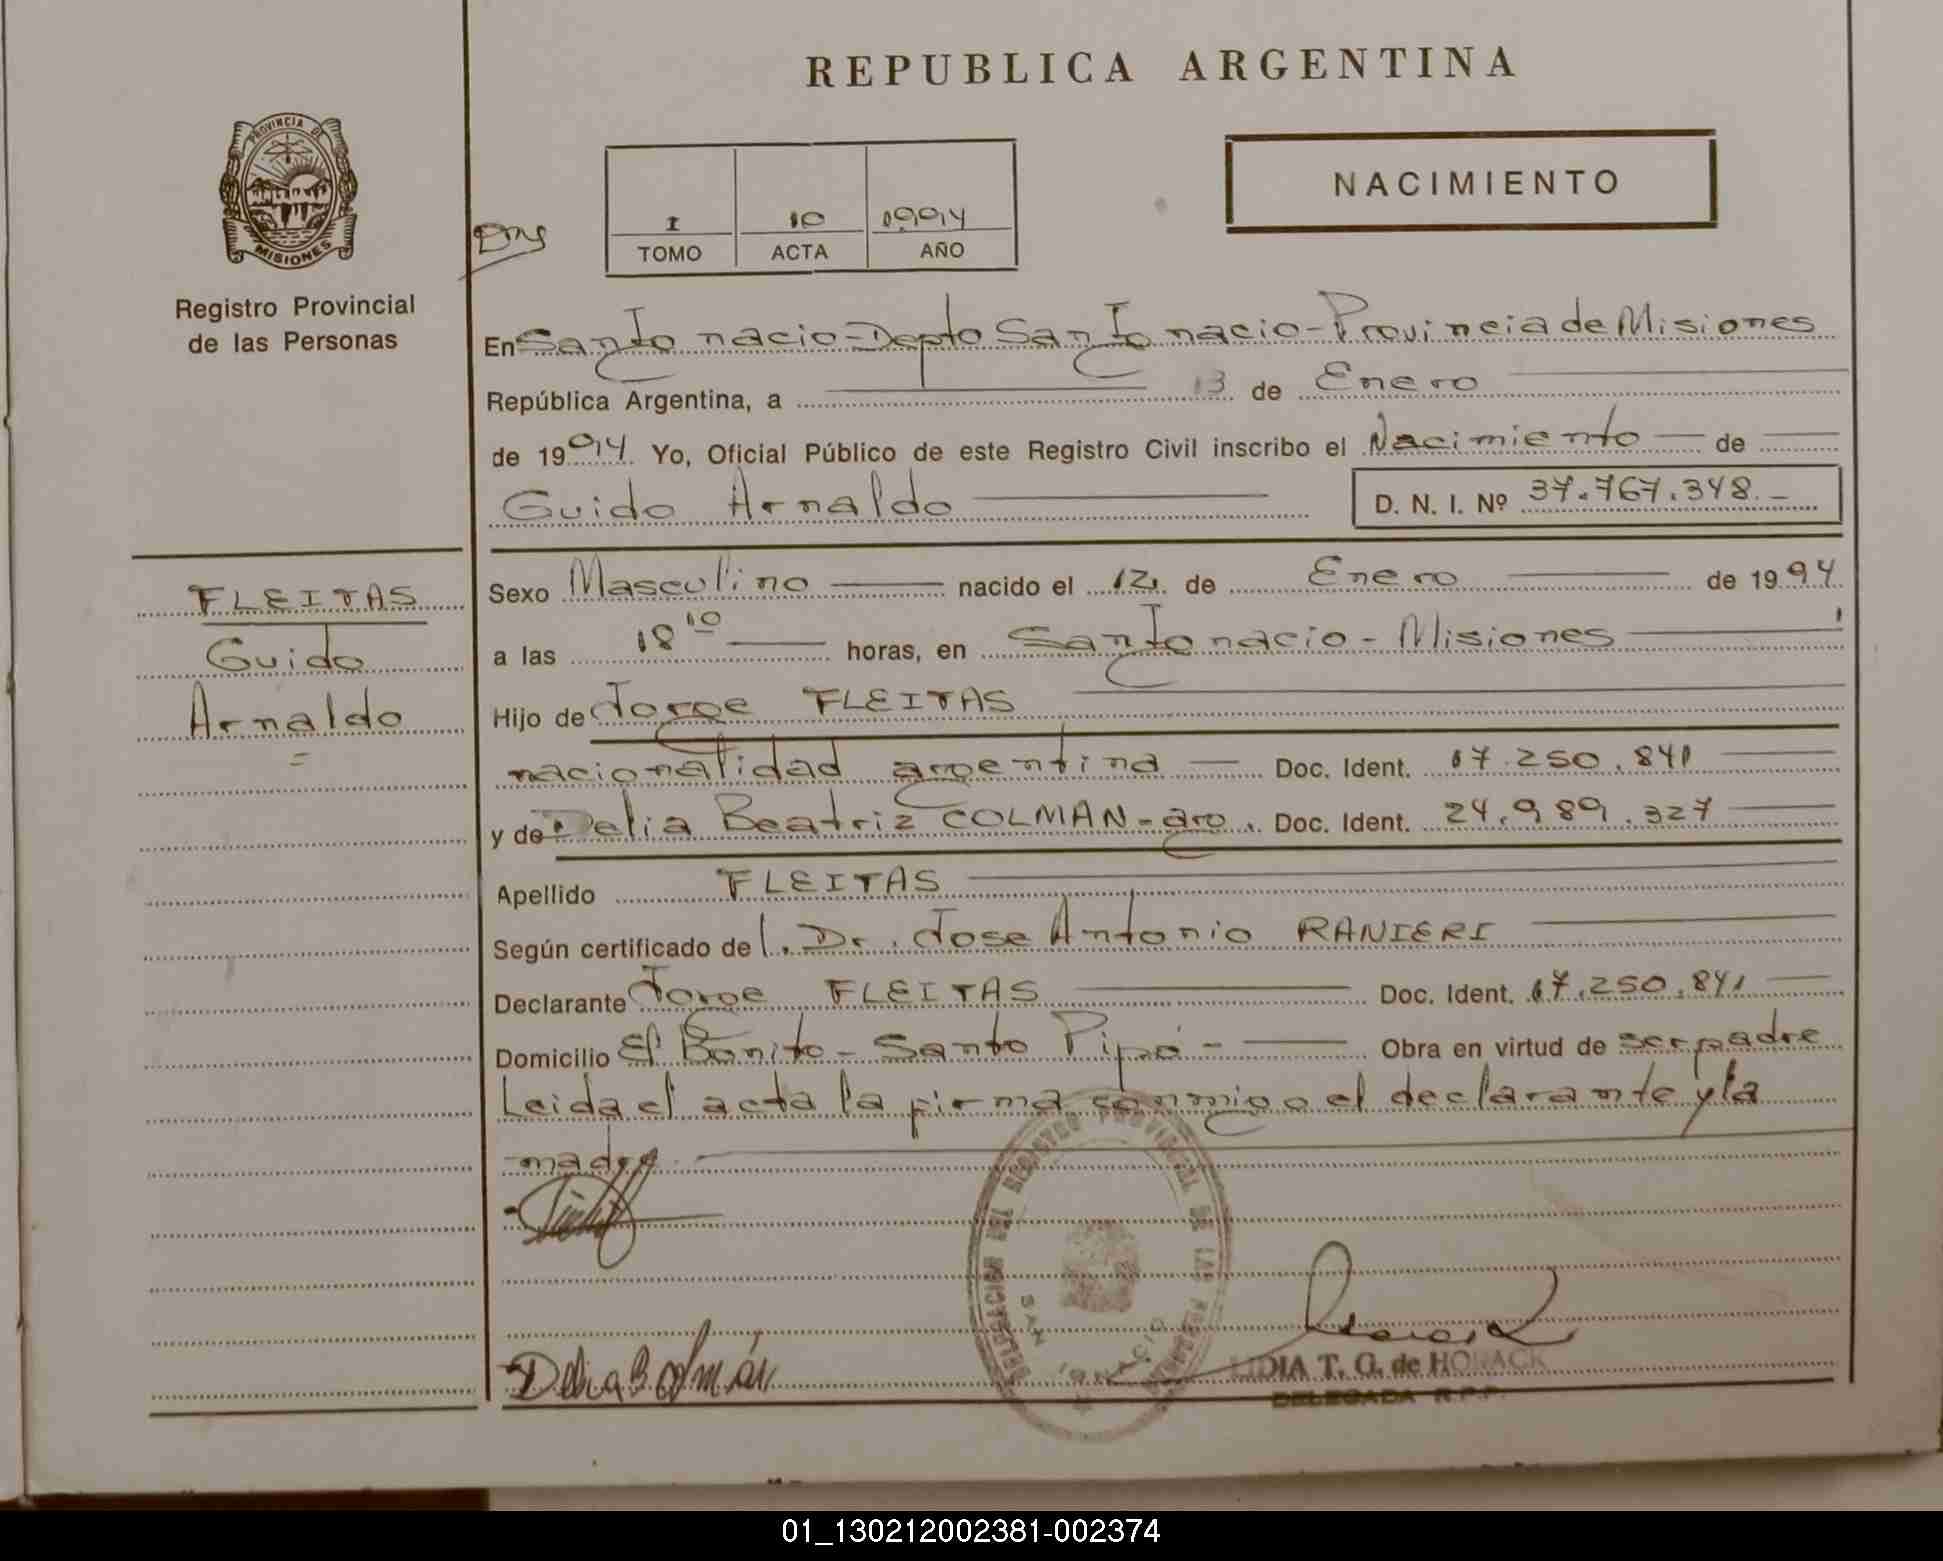 REPUBLICA ARGENTINA
PROVINCIA DE
MISIONES
Registro Provincial
de las Personas
NACIMIENTO
I 10 1994
TOMO ACTA AÑO
En San Ignacio - Depto San Ignacio - Provincia de Misiones
República Argentina, a 13 de Enero
de 1994 Yo, Oficial Público de este Registro Civil inscribo el Nacimiento de
Guido Arnaldo D. N. I. Nº 37.767.348.-
FLEITAS
Guido
Arnaldo
Sexo Masculino nacido el 12 de Enero de 1994
a las 18 10 horas, en San Ignacio - Misiones
Hijo de Jorge FLEITAS
nacionalidad argentina Doc. Ident. 17.250.841
y de Delia Beatriz COLMAN - arg. Doc. Ident. 24.989.327
Apellido FLEITAS
Según certificado del Dr. Jose Antonio RANIERI
Declarante Jorge FLEITAS Doc. Ident. 17.250.841
Domicilio El Bonito - Santo Pipó - Obra en virtud de ser padre
Leida el acta la firma conmigo el declarante y la
madre
DELEGACION DEL REGISTRO PROVINCIAL DE LAS PERSONAS
SAN IGNACIO
Delia B. Colmán
LIDIA T. G. de HORACK
DELEGADA R.P.P.
01_130212002381-002374